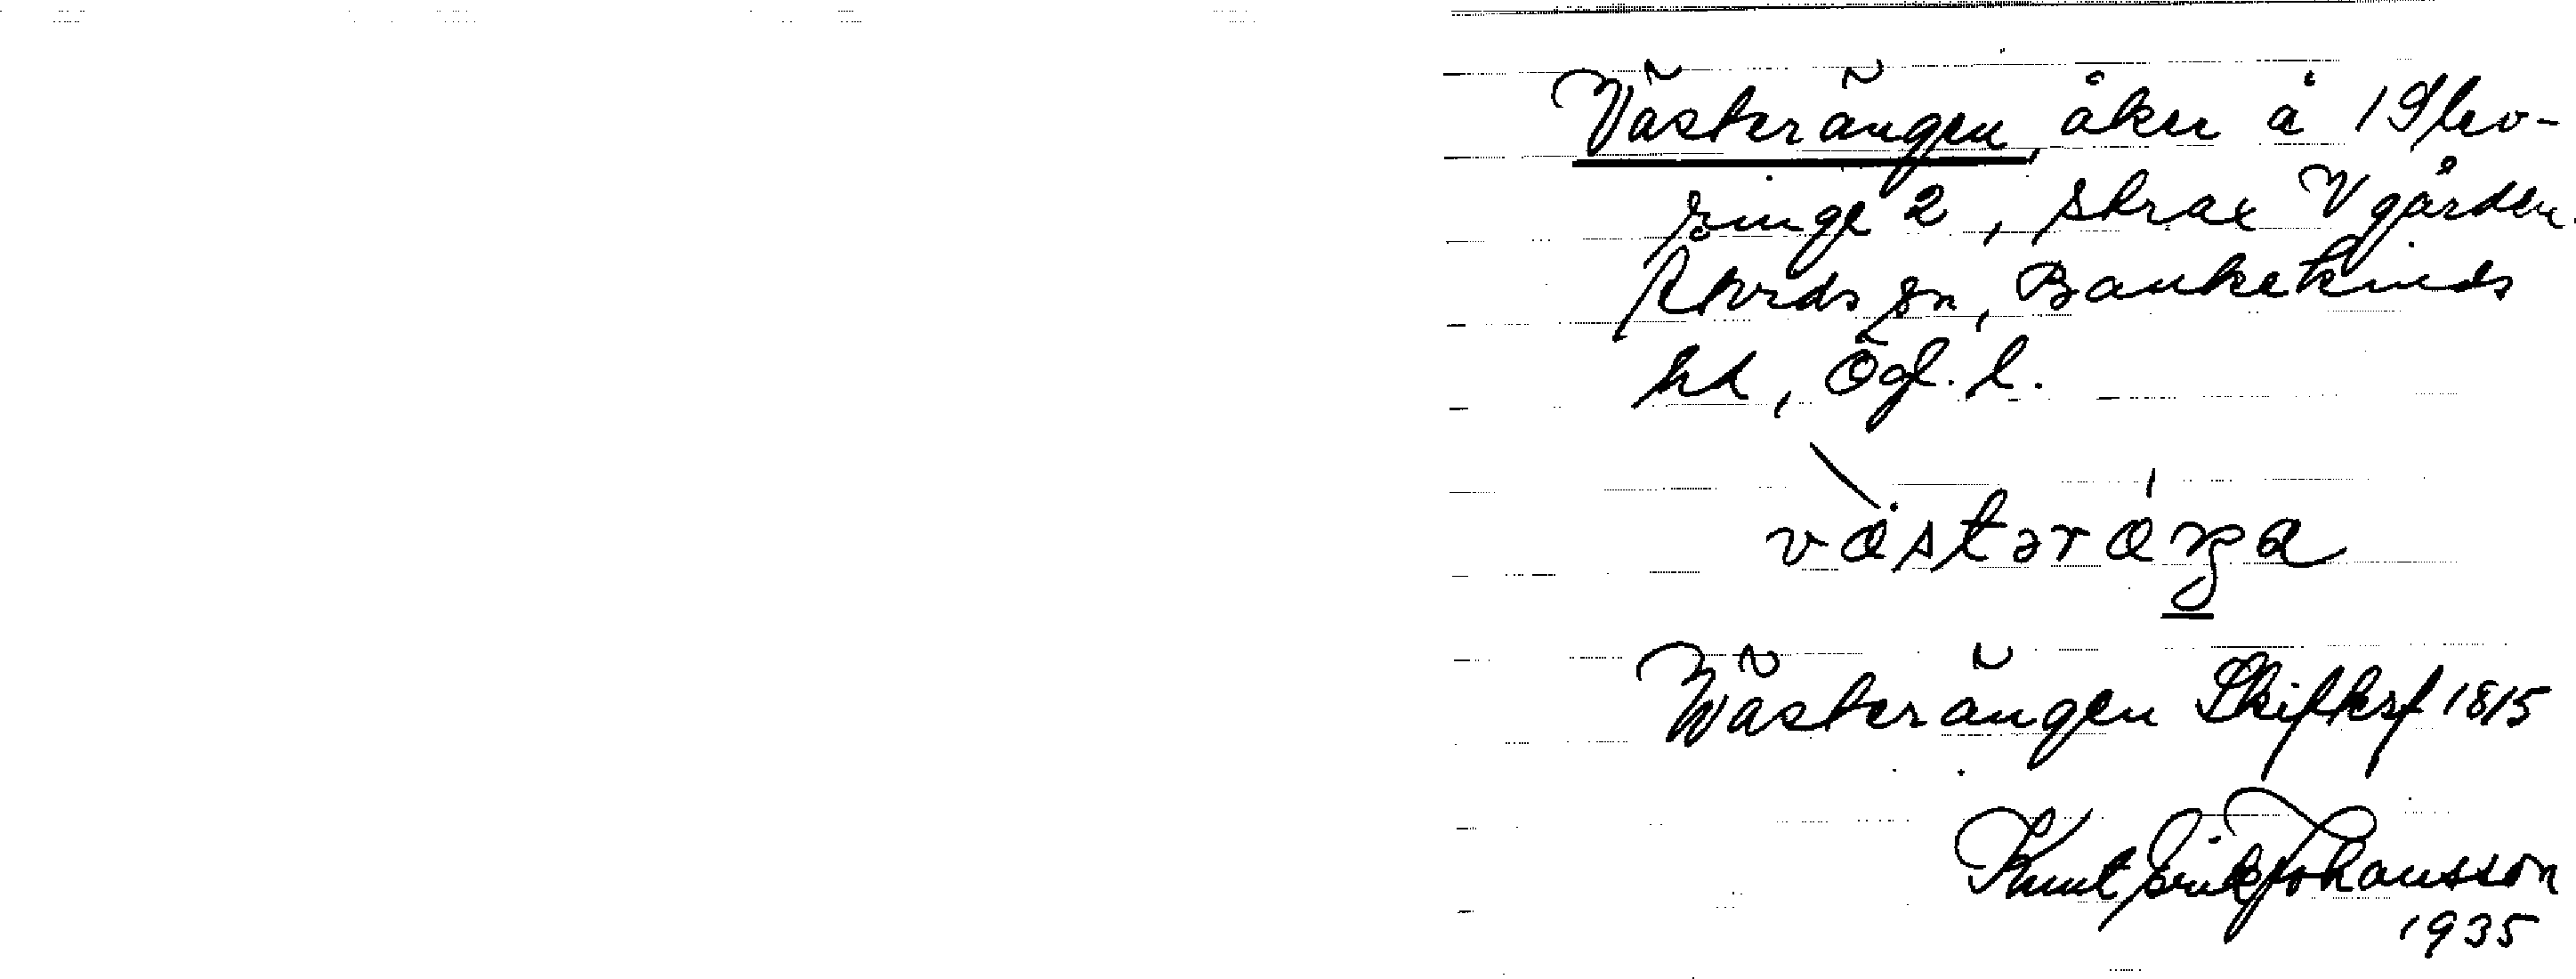 Västerängen, åker å
ringe 2, strax V gården.
Åtvids sn, Bankekinds
hd, Ögl. l.
Wästerängen Skiftkrt 1815
Knut Erik Johansson
1935